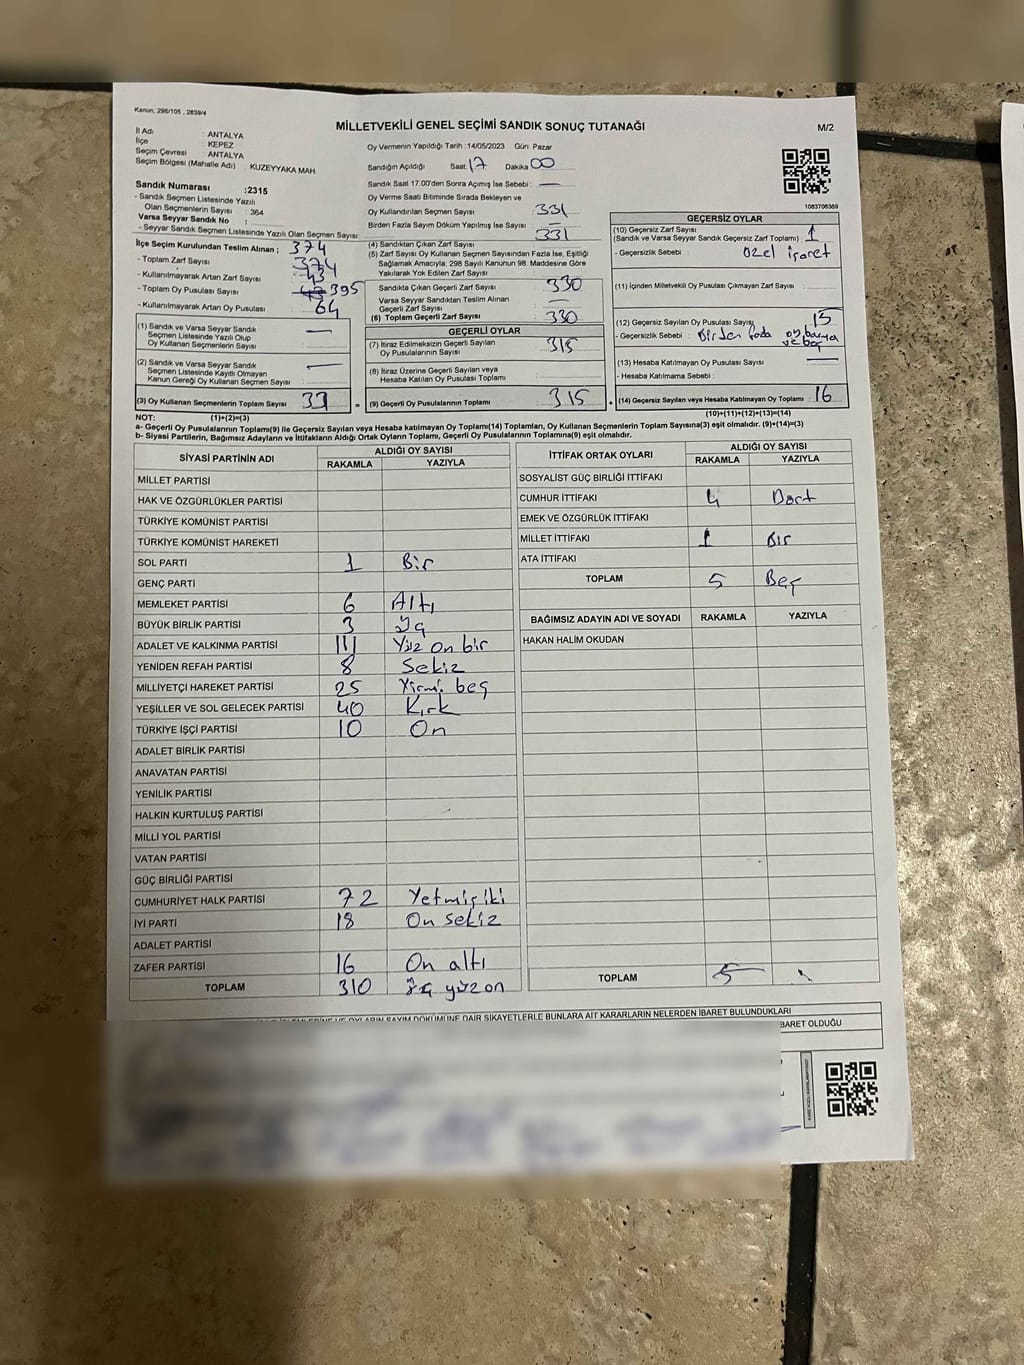 Kanun; 298/105 , 2839/4
MİLLETVEKİLİ GENEL SEÇİMİ SANDIK SONUÇ TUTANAĞI
M/2
İl Adı : ANTALYA
İlçe : KEPEZ
Seçim Çevresi : ANTALYA
Seçim Bölgesi (Mahalle Adı) : KUZEYYAKA MAH.
Sandık Numarası :2315
- Sandık Seçmen Listesinde Yazılı
Olan Seçmenlerin Sayısı : 364
Varsa Seyyar Sandık No :
- Seyyar Sandık Seçmen Listesinde Yazılı Olan Seçmen Sayısı:
İlçe Seçim Kurulundan Teslim Alınan ; 374
- Toplam Zarf Sayısı : 374
- Kullanılmayarak Artan Zarf Sayısı : 43
- Toplam Oy Pusulası Sayısı : 395
- Kullanılmayarak Artan Oy Pusulası : 64
(1) Sandık ve Varsa Seyyar Sandık
Seçmen Listesinde Yazılı Olup
Oy Kullanan Seçmenlerin Sayısı : —
(2) Sandık ve Varsa Seyyar Sandık
Seçmen Listesinde Kayıtlı Olmayan
Kanun Gereği Oy Kullanan Seçmen Sayısı : —
(3) Oy Kullanan Seçmenlerin Toplam Sayısı :
Oy Vermenin Yapıldığı Tarih :14/05/2023 Gün: Pazar
Sandığın Açıldığı Saat: 17 Dakika: 00
Sandık Saat 17.00'den Sonra Açımış İse Sebebi : —
Oy Verme Saati Bitiminde Sırada Bekleyen ve
Oy Kullandırılan Seçmen Sayısı : 331
Birden Fazla Sayım Döküm Yapılmış İse Sayısı : —
(4) Sandıktan Çıkan Zarf Sayısı : 331
(5) Zarf Sayısı Oy Kullanan Seçmen Sayısından Fazla İse, Eşitliği
Sağlamak Amacıyla; 298 Sayılı Kanunun 98. Maddesine Göre
Yakılarak Yok Edilen Zarf Sayısı :
Sandıkta Çıkan Geçerli Zarf Sayısı : 330
Varsa Seyyar Sandıktan Teslim Alınan
Geçerli Zarf Sayısı : —
(6) Toplam Geçerli Zarf Sayısı : 330
GEÇERLİ OYLAR
(7) İtiraz Edilmeksizin Geçerli Sayılan
Oy Pusulalarının Sayısı : 315
(8) İtiraz Üzerine Geçerli Sayılan veya
Hesaba Katılan Oy Pusulası Toplamı :
(9) Geçerli Oy Pusulalarının Toplamı : 315
1083706369
GEÇERSİZ OYLAR
(10) Geçersiz Zarf Sayısı
(Sandık ve Varsa Seyyar Sandık Geçersiz Zarf Toplamı) : 1
- Geçersizlik Sebebi : özel işaret
(11) İçinden Milletvekili Oy Pusulası Çıkmayan Zarf Sayısı :
(12) Geçersiz Sayılan Oy Pusulası Sayısı : 15
- Geçersizlik Sebebi : Birden fazla
(13) Hesaba Katılmayan Oy Pusulası Sayısı : —
- Hesaba Katılmama Sebebi :
(14) Geçersiz Sayılan veya Hesaba Katılmayan Oy Toplamı : 16
NOT: (1)+(2)=(3)
(10)+(11)+(12)+(13)=(14)
a- Geçerli Oy Pusulalarının Toplamı(9) ile Geçersiz Sayılan veya Hesaba Katılmayan Oy Toplamı(14) Toplamları, Oy Kullanan Seçmenlerin Toplam Sayısına(3) eşit olmalıdır. (9)+(14)=(3)
b- Siyasi Partilerin, Bağımsız Adayların ve İttifakların Aldığı Ortak Oyların Toplamı, Geçerli Oy Pusulalarının Toplamına(9) eşit olmalıdır.
SİYASİ PARTİNİN ADI ALDIĞI OY SAYISI
RAKAMLA YAZIYLA
MİLLET PARTİSİ
HAK VE ÖZGÜRLÜKLER PARTİSİ
TÜRKİYE KOMÜNİST PARTİSİ
TÜRKİYE KOMÜNİST HAREKETİ
SOL PARTİ 1 Bir
GENÇ PARTİ
MEMLEKET PARTİSİ 6 Altı
BÜYÜK BİRLİK PARTİSİ 3 Üç
ADALET VE KALKINMA PARTİSİ 111 Yüz on bir
YENİDEN REFAH PARTİSİ 8 Sekiz
MİLLİYETÇİ HAREKET PARTİSİ 25 Yirmi beş
YEŞİLLER VE SOL GELECEK PARTİSİ 40 Kırk
TÜRKİYE İŞÇİ PARTİSİ 10 On
ADALET BİRLİK PARTİSİ
ANAVATAN PARTİSİ
YENİLİK PARTİSİ
HALKIN KURTULUŞ PARTİSİ
MİLLİ YOL PARTİSİ
VATAN PARTİSİ
GÜÇ BİRLİĞİ PARTİSİ
CUMHURİYET HALK PARTİSİ 72 Yetmiş iki
İYİ PARTİ 18 On sekiz
ADALET PARTİSİ
ZAFER PARTİSİ 16 On altı
TOPLAM 310 Üç yüz on
İTTİFAK ORTAK OYLARI ALDIĞI OY SAYISI
RAKAMLA YAZIYLA
SOSYALİST GÜÇ BİRLİĞİ İTTİFAKI
CUMHUR İTTİFAKI 4 Dört
EMEK VE ÖZGÜRLÜK İTTİFAKI
MİLLET İTTİFAKI 1 Bir
ATA İTTİFAKI
TOPLAM 5 Beş
BAĞIMSIZ ADAYIN ADI VE SOYADI RAKAMLA YAZIYLA
HAKAN HALİM OKUDAN
TOPLAM 5
OYLARIN SAYIM DÖKÜMÜNE DAİR ŞİKAYETLERLE BUNLARA AİT KARARLARIN NELERDEN İBARET BULUNDUKLARI
BARET OLDUĞU